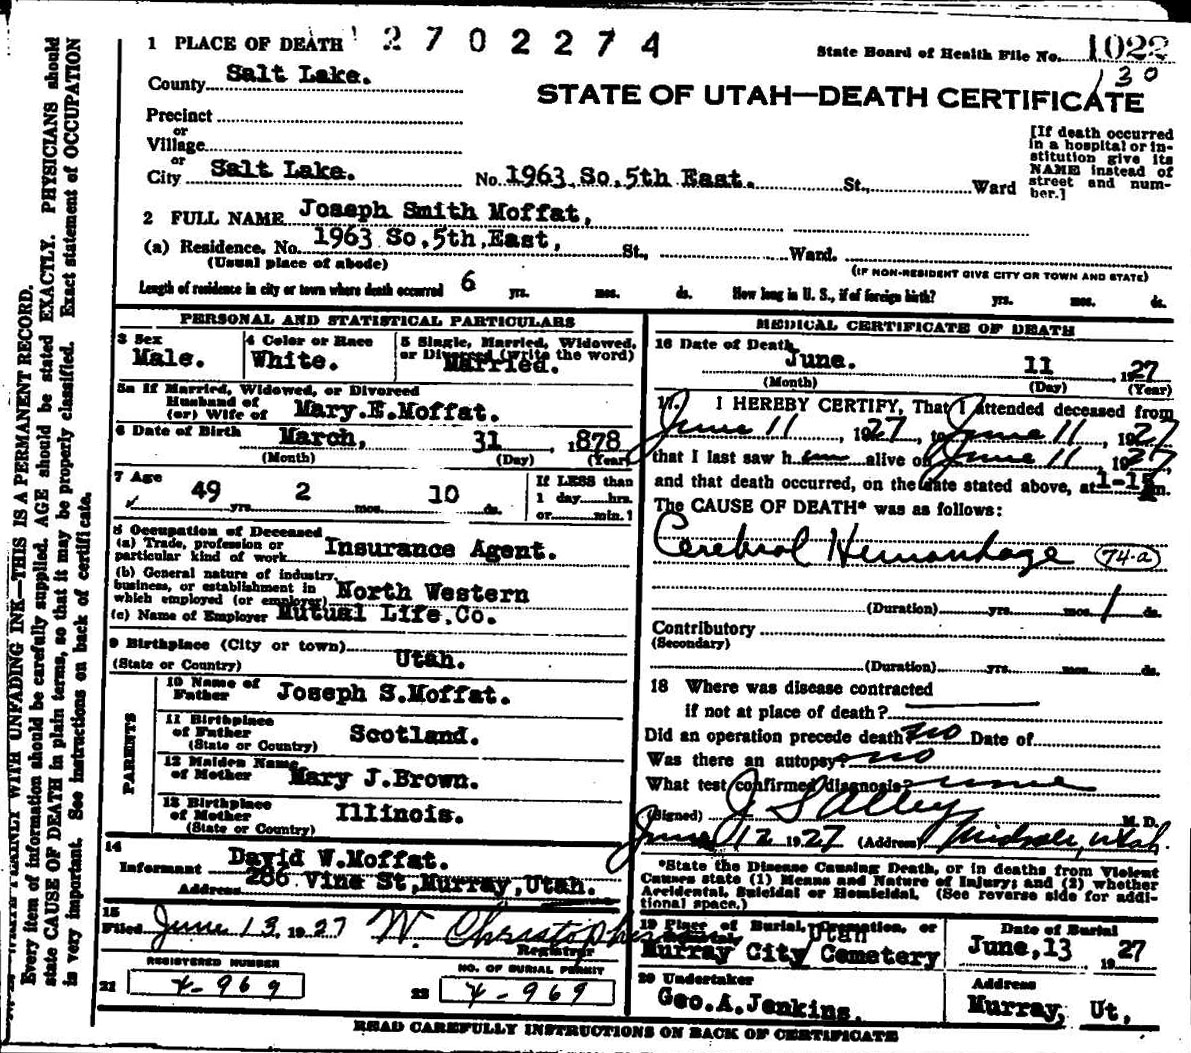 1 PLACE OF DEATH 2702274
State Board of Health File No. 1022
130
County Salt Lake.
STATE OF UTAH—DEATH CERTIFICATE
Precinct
or
Village
or
City Salt Lake. No. 1963 So, 5th East. St., Ward
[If death occurred
in a hospital or in-
stitution give its
NAME instead of
street and num-
ber.]
2 FULL NAME Joseph Smith Moffat,
(a) Residence, No. 1963 So, 5th, East, St., Ward.
(Usual place of abode)
(IF NON-RESIDENT GIVE CITY OR TOWN AND STATE)
Length of residence in city or town where death occurred 6 yrs. mos. ds. How long in U. S., if of foreign birth? yrs. mos. ds.
PERSONAL AND STATISTICAL PARTICULARS
3 Sex Male.
4 Color or Race White.
5 Single, Married, Widowed,
or Divorced (write the word)
Married.
5a If Married, Widowed, or Divorced
Husband of
(or) Wife of Mary.E.Moffat.
6 Date of Birth March, 31 1878
(Month) (Day) (Year)
7 Age 49 yrs. 2 mos. 10 ds.
If LESS than
1 day hrs.
or min.1
8 Occupation of Deceased
(a) Trade, profession or
particular kind of work Insurance Agent.
(b) General nature of industry,
business, or establishment in
which employed (or employer) North Western
(c) Name of Employer Mutual Life.Co.
9 Birthplace (City or town)
(State or Country) Utah.
PARENTS
10 Name of
Father Joseph S.Moffat.
11 Birthplace
of Father Scotland.
(State or Country)
12 Maiden Name
of Mother Mary J.Brown.
13 Birthplace
of Mother Illinois.
(State or Country)
14
Informant David W.Moffat.
Address 286 Vine St,Murray,Utah.
15
Filed June 13 1927 W. Christopherson
Registrar
REGISTERED NUMBER
21 4-969
NO. OF BURIAL PERMIT
22 4-969
MEDICAL CERTIFICATE OF DEATH
16 Date of Death June. 11, 1927
(Month) (Day) (Year)
17. I HEREBY CERTIFY, That I attended deceased from
June 11, 1927, to June 11, 1927
that I last saw him alive on June 11, 1927
and that death occurred, on the date stated above, at 1-15 m.
The CAUSE OF DEATH* was as follows:
Cerebral Hemorrhage (74-a)
(Duration) yrs. mos. 1 ds.
Contributory
(Secondary)
(Duration) yrs. mos. ds.
18 Where was disease contracted
if not at place of death?
Did an operation precede death? no Date of
Was there an autopsy? no
What test confirmed diagnosis? none
(Signed) J S Alley M. D.
June 12 1927 (Address) Midvale, Utah.
*State the Disease Causing Death, or in deaths from Violent
Causes state (1) Means and Nature of Injury; and (2) whether
Accidental, Suicidal or Homicidal. (See reverse side for addi-
tional space.)
19 Place of Burial, Cremation, or
Removal Utah
Murray City Cemetery
Date of Burial
June,13 1927
20 Undertaker
Geo.A.Jenkins.
Address
Murray, Ut,
READ CAREFULLY INSTRUCTIONS ON BACK OF CERTIFICATE
WRITE PLAINLY WITH UNFADING INK—THIS IS A PERMANENT RECORD.
Every item of information should be carefully supplied. AGE should be stated EXACTLY. PHYSICIANS should
state CAUSE OF DEATH in plain terms, so that it may be properly classified. Exact statement of OCCUPATION
is very important. See instructions on back of certificate.